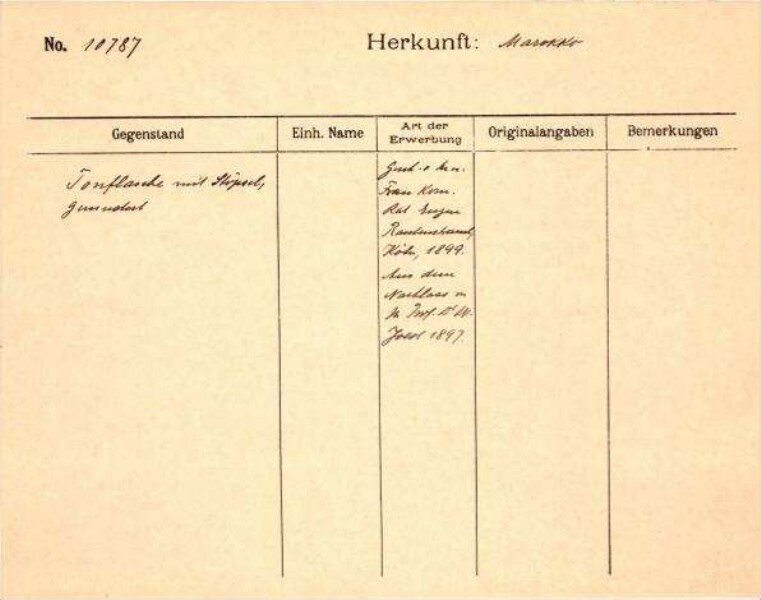 No. 10787 Herkunft: Marokko
Gegenstand Einh. Name Art der Erwerbung Originalangaben Bemerkungen
Tonflasche mit Stöpsel,
Gesch. v.
Frau Kom.
Rat Eugen
Rautenstrauch,
Köln, 1899.
Aus dem
Nachlass
Prof. Dr W.
Joest 1897.